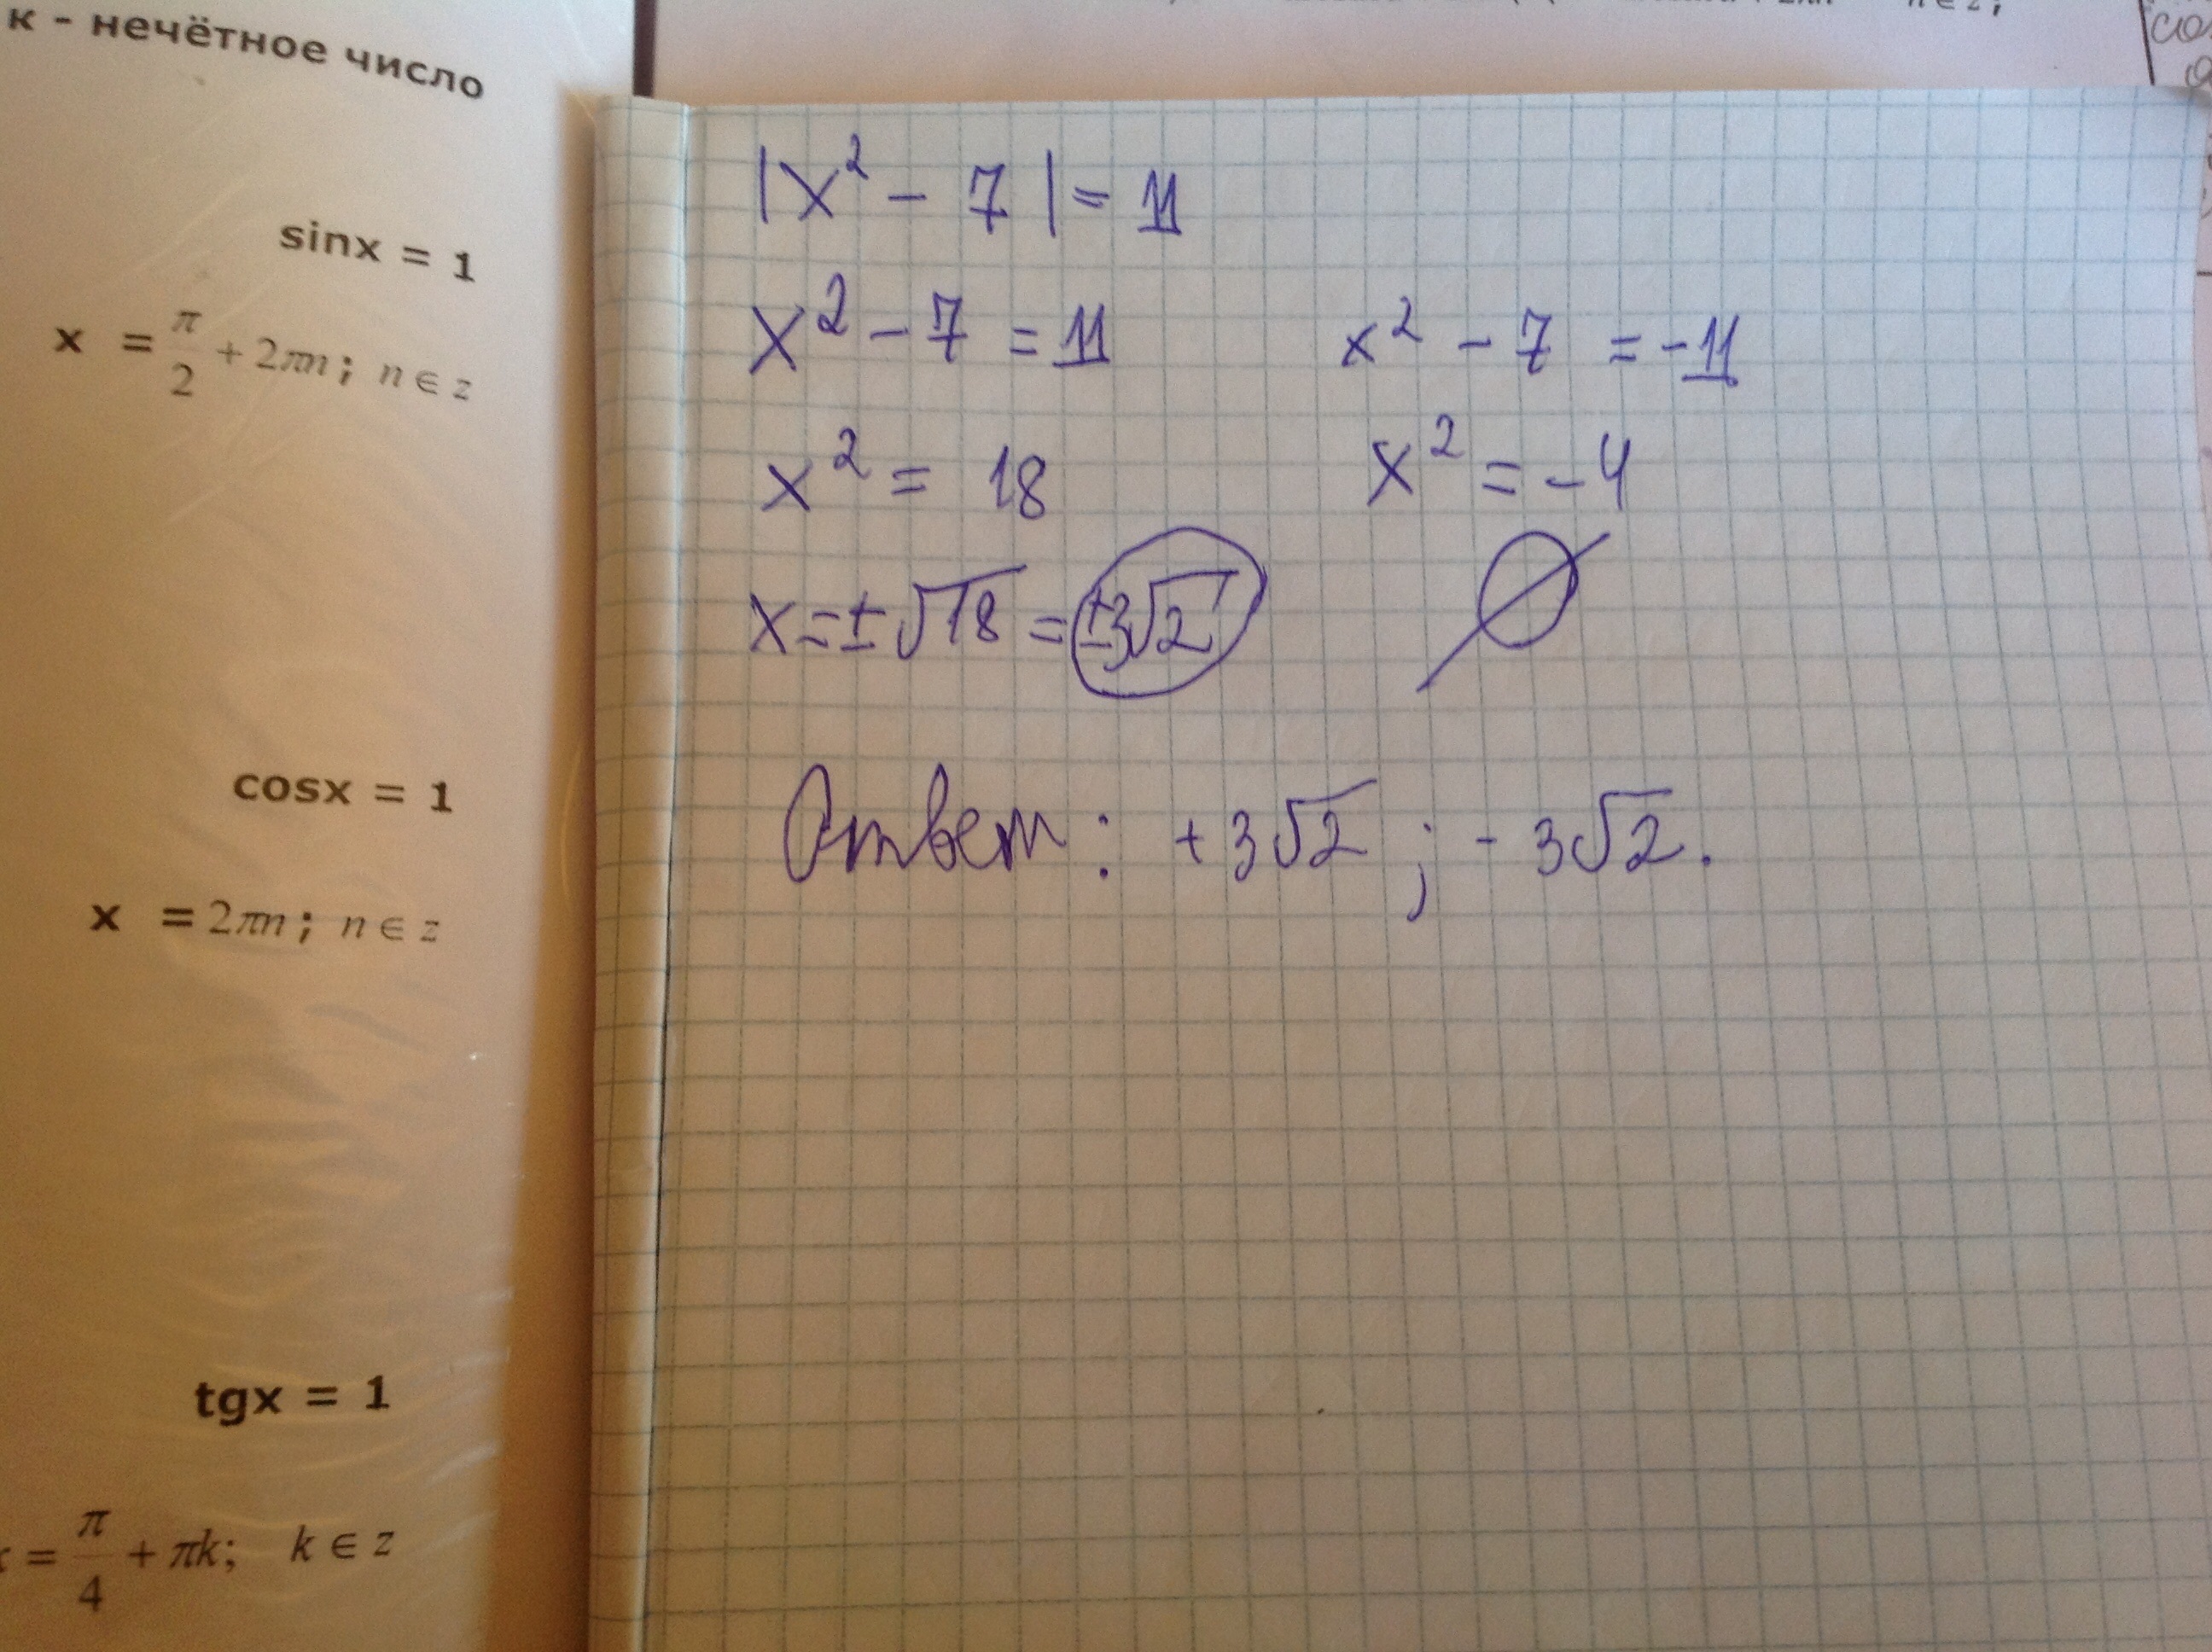 к - нечётное число
sinx = 1
x = π/2 + 2πn; n ∈ z
cosx = 1
x = 2πn; n ∈ z
tgx = 1
= π/4 + πk; k ∈ z
n ∈ z;
|x² - 7| = 11
x² - 7 = 11    x² - 7 = -11
x² = 18    x² = -4
x = ±√18 = ±3√2    ∅
Ответ: +3√2; -3√2.